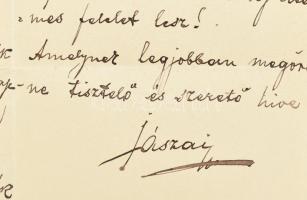 mes felelet lesz!
Amelynek legjobban megör
ne tisztelő és szerető híve
Jászai